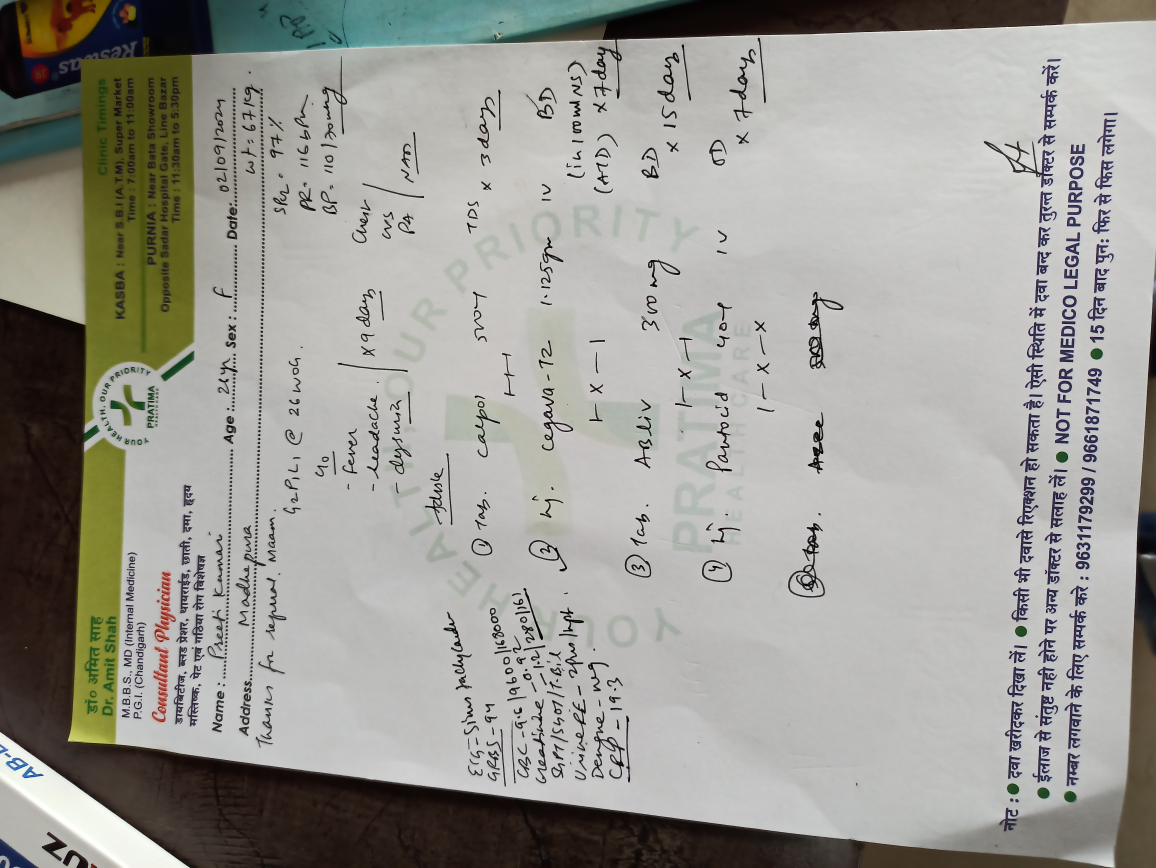 डॉ० अमित साह
Dr. Amit Shah
M.B.B.S., MD (Internal Medicine)
P.G.I. (Chandigarh)
Consultant Physician
डायबिटीज, ब्लड प्रेशर, थायराईड, छाती, दमा, हृदय
मस्तिष्क, पेट एवं गठिया रोग विशेषज्ञ
YOUR HEALTH, OUR PRIORITY
PRATIMA
Clinic Timings
KASBA : Near S.B.I (A.T.M), Super Market
Time : 7:00am to 11:00am
PURNIA : Near Bata Showroom
Opposite Sadar Hospital Gate, Line Bazar
Time : 11:30am to 5:30pm
Name : Preeti Kumari Age : 24yr Sex : F Date: 02/09/2024
Address Madhepura Wt: 67kg
Thanks for referral. Maam.
G2P1L1 @ 26 WOG.
SPO2 = 97%
PR = 116 bpm
BP = 110/70 mmHg
- fever
- headache
- dysuria
x 9 days
Chest
PA
NAD
Advise
ECG - Sinus tachycardia
GRBS - 94
CBC - 9.6/9600/168000
Creatinine - 0.92
SGPT/SGOT/T.Bil - 1.2/280/161
Urine RE -
Dengue - neg.
CRP - 19.3
① Tab. Calpol 500mg TDS x 3 days
② Inj. Cegava-TZ 1.125gm IV BD
1 - x - 1 (in 100ml NS)
x 7 days
③ Tab. ABLiv 300mg BD
1 - x - 1 x 15 days
④ Inj. Pantocid 40mg IV OD
1 - x - x x 7 days
YOUR HEALTH OUR PRIORITY
PRATIMA
HEALTHCARE
नोट : ● दवा खरीदकर दिखा लें। ● किसी भी दवासे रिएक्शन हो सकता है। ऐसी स्थिति में दवा बन्द कर तुरन्त डॉक्टर से सम्पर्क करें।
● ईलाज से संतुष्ट नही होने पर अन्य डॉक्टर से सलाह लें। ● NOT FOR MEDICO LEGAL PURPOSE
● नम्बर लगवाने के लिए सम्पर्क करे : 9631179299 / 9661871749 ● 15 दिन बाद पुनः फिर से फिस लगेगा।